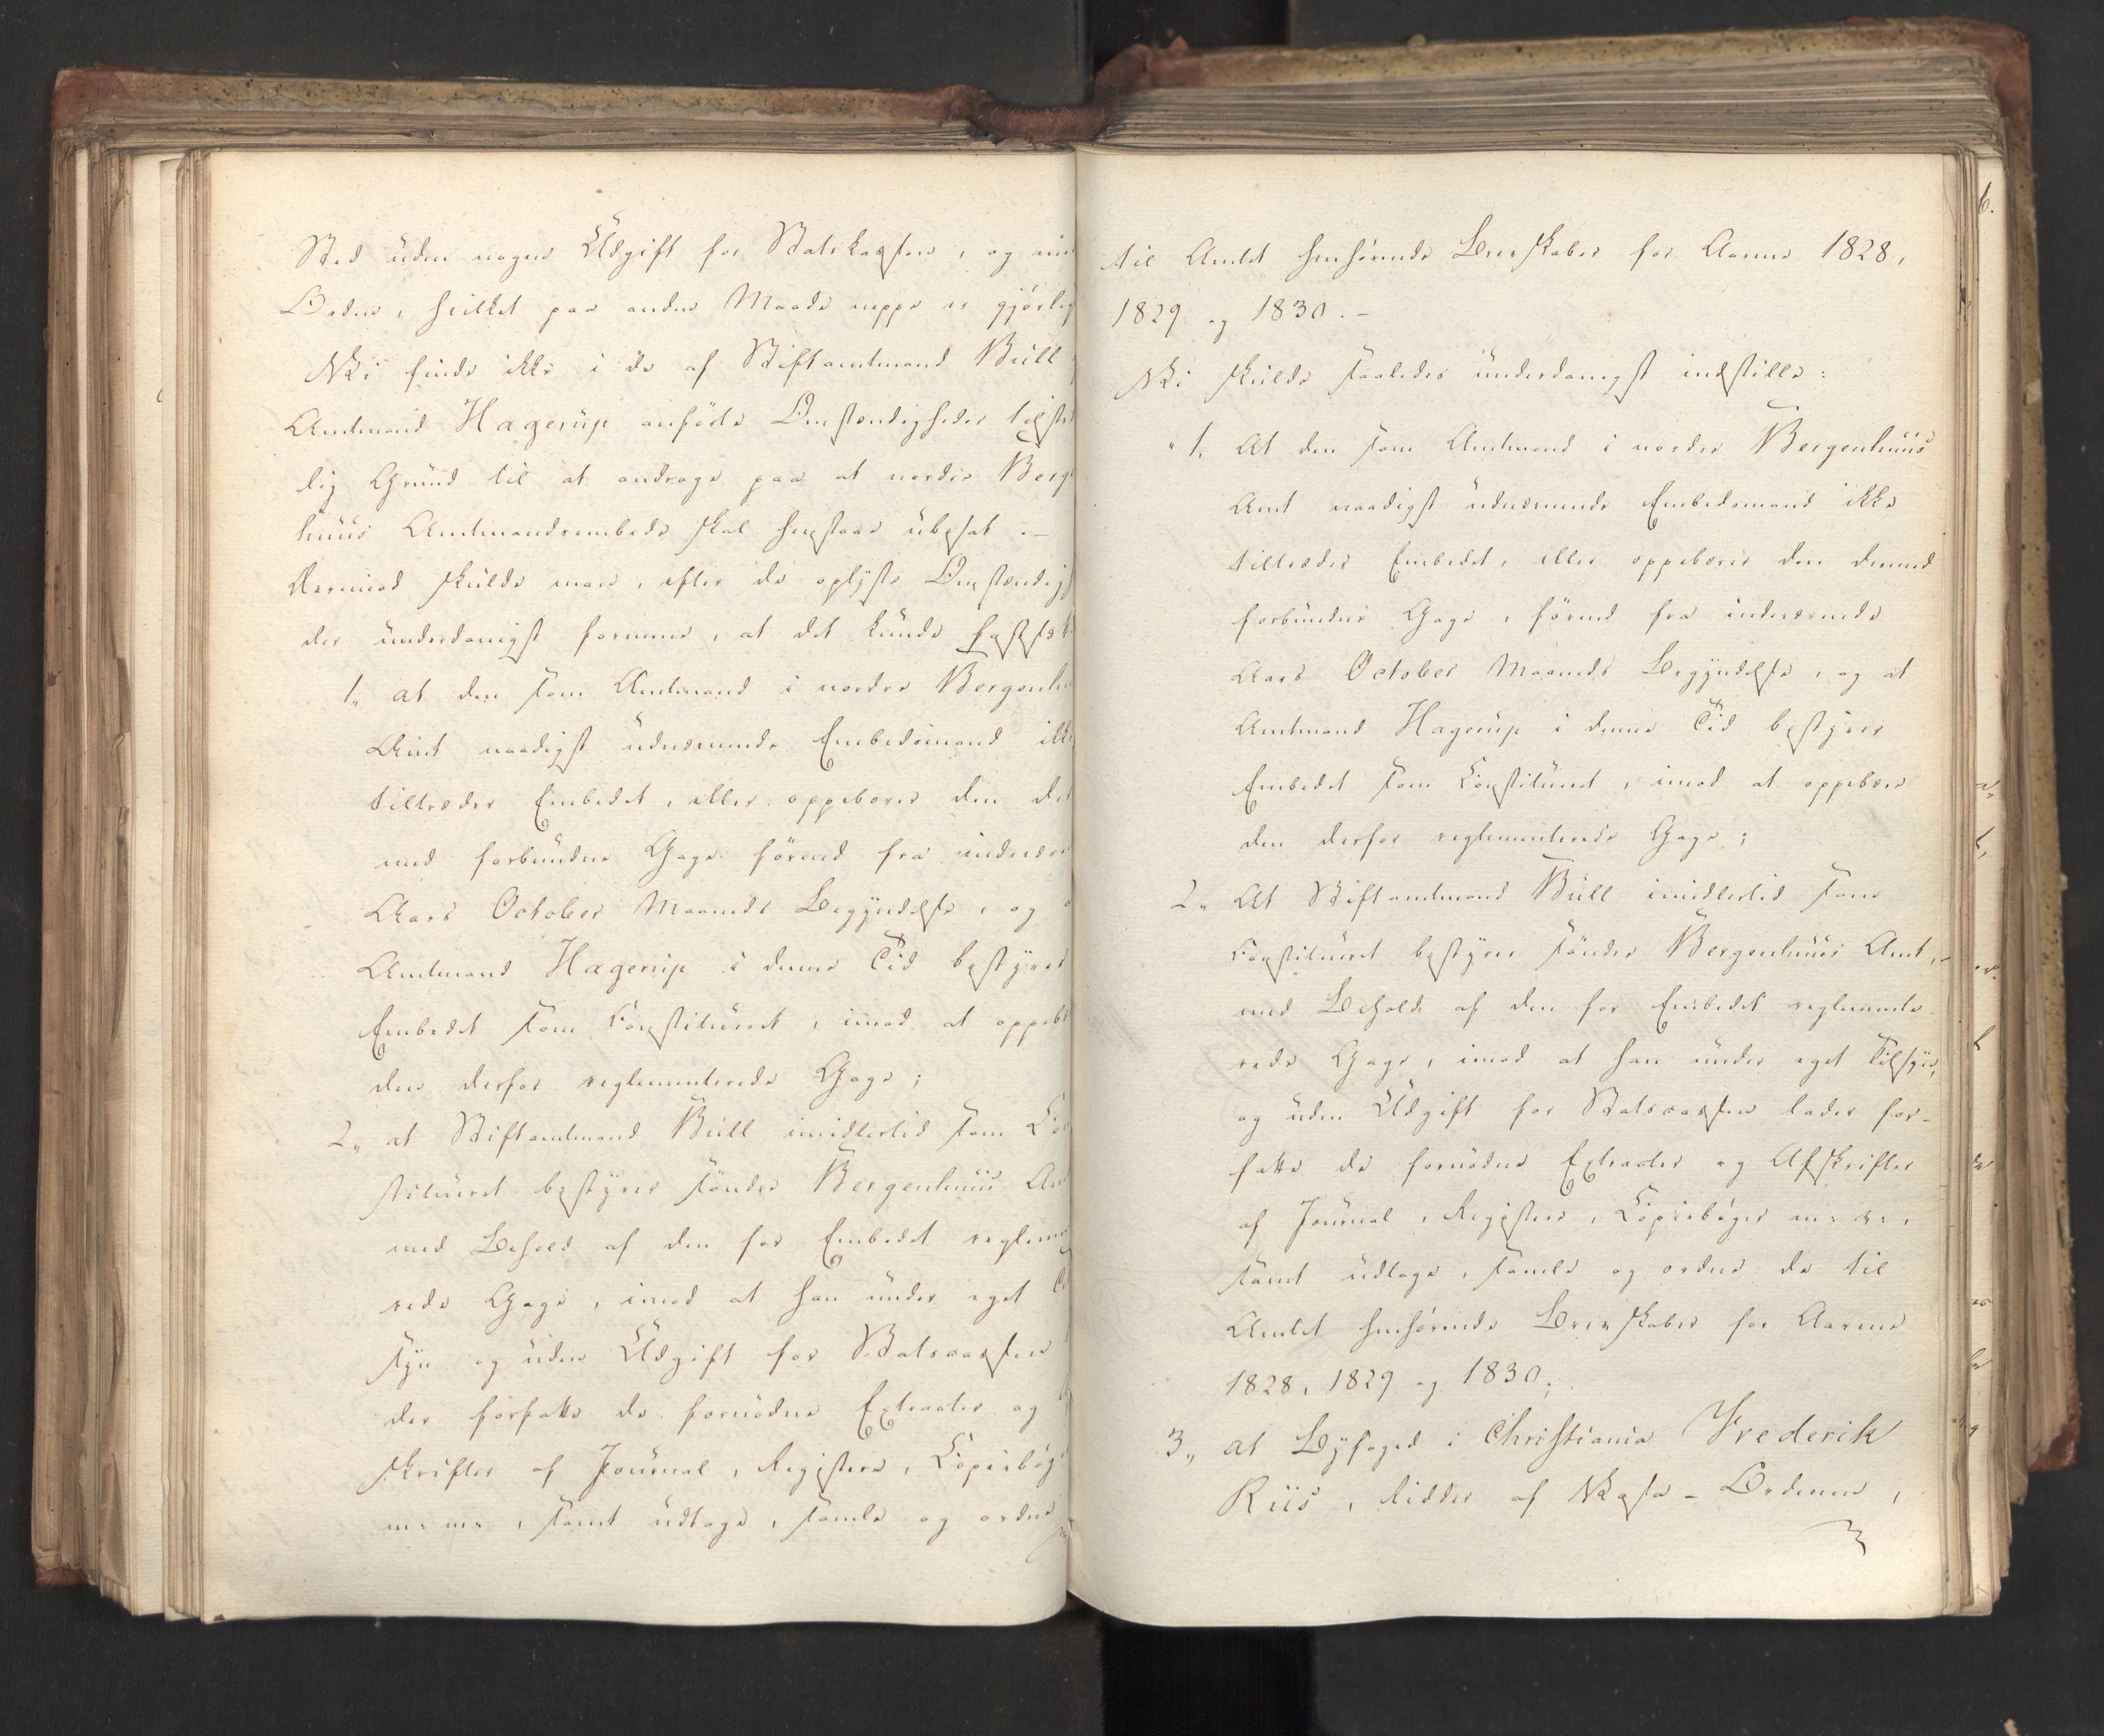 Sted uden nogen Udgift for Statskassen, og i
Orden, hvilket paa anden Maade neppe er gjørlig
Vi finde ikke i de af Stiftamtmand Bull
Amtmand Hagerup anførte Omstændigheder tilstræk
lig Grund til at andrage paa at nordre Berg
huus Amtmandsembede skal henstaae ubesat. –
Derimod skulde man, efter de oplyste Omstændig
der underdanigst formene, at det kunde fastsæt
1, at den som Amtmand i nordre Bergenhu
Amt naadigst udnævnende Embedsmand ikke
tiltræder Embedet, eller oppebærer den der
med forbundne Gage førend fra indevær
Aars October Maaneds Begyndelse, og
Amtmand Hagerup i denne Tid bestyrer
Embedet som Constitueret, imod at oppebæ
den derfor reglementerede Gage;
2, at Stiftamtmand Bull imidlertid som Con
stitueret bestyrer søndre Bergenhuus Am
med Behold af den for Embedet reglemen
rede Gage, imod at han under eget Til
syn og uden Udgift for Statscassen
der forfatte de fornødne Extracter og
skrifter af Journal, Registere, Copiebøg
m: m: , samt udtage, samle og ordne
til Amtet henhørende Brevskaber for Aarene 1828,
1829 og 1830. –
Vi skulde saaledes underdanigst indstille:
"1, At den som Amtmand i nordre Bergenhuus
Amt naadigst udnævnende Embedsmand ikke
tiltræder Embedet, eller oppebærer den dermed
forbundne Gage, førend fra indeværende
Aars October Maaneds Begyndelse, og at
Amtmand Hagerup i denne Tid bestyrer
Embedet som Constitueret, imod at oppebære
den derfor reglementerede Gage;
2, At Stiftamtmand Bull imidlertid som
Constitueret bestyrer søndre Bergenhuus Amt,
med Behold af den for Embedet reglemente-
rede Gage, imod at han under eget Tilsyn,
og uden Udgift for Statscassen lader for-
fatte de fornødne Extracter og Afskrifter
af Journal, Registere, Copiebøger m: v: ,
samt udtage, samle og ordne de til
Amtet henhørende Brevskaber for Aarene
1828, 1829 og 1830;
3, at Byfoged i Christiania Frederik
Riis, Ridder af Vasa-Ordenen,